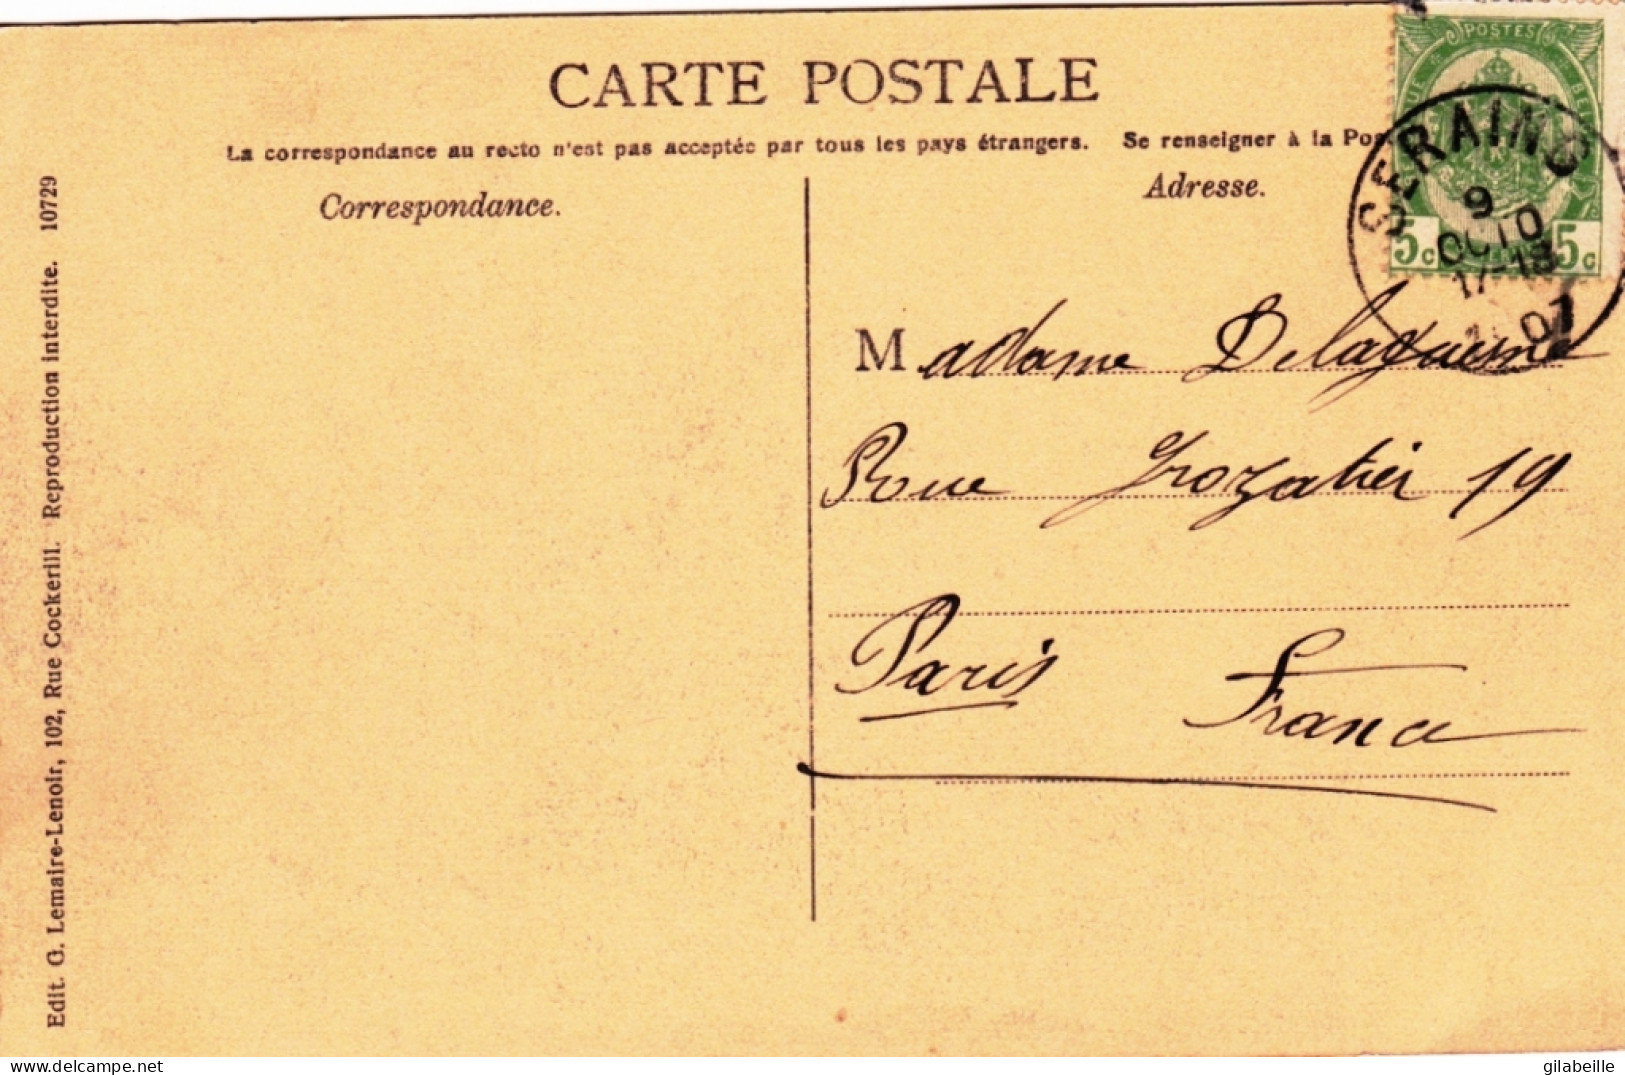 CARTE POSTALE
La correspondance au recto n'est pas acceptée par tous les pays étrangers. Se renseigner à la Pos
Correspondance.
Adresse.
POSTES
5c 5c
SERAING
9
OCTO
17-18
07
Madame Delaquesne
Rue Crozatier 19
Paris France
Edit. G. Lemaire-Lenoir, 102, Rue Cockerill. Reproduction interdite. 10729
www.delcampe.net
gilabeille